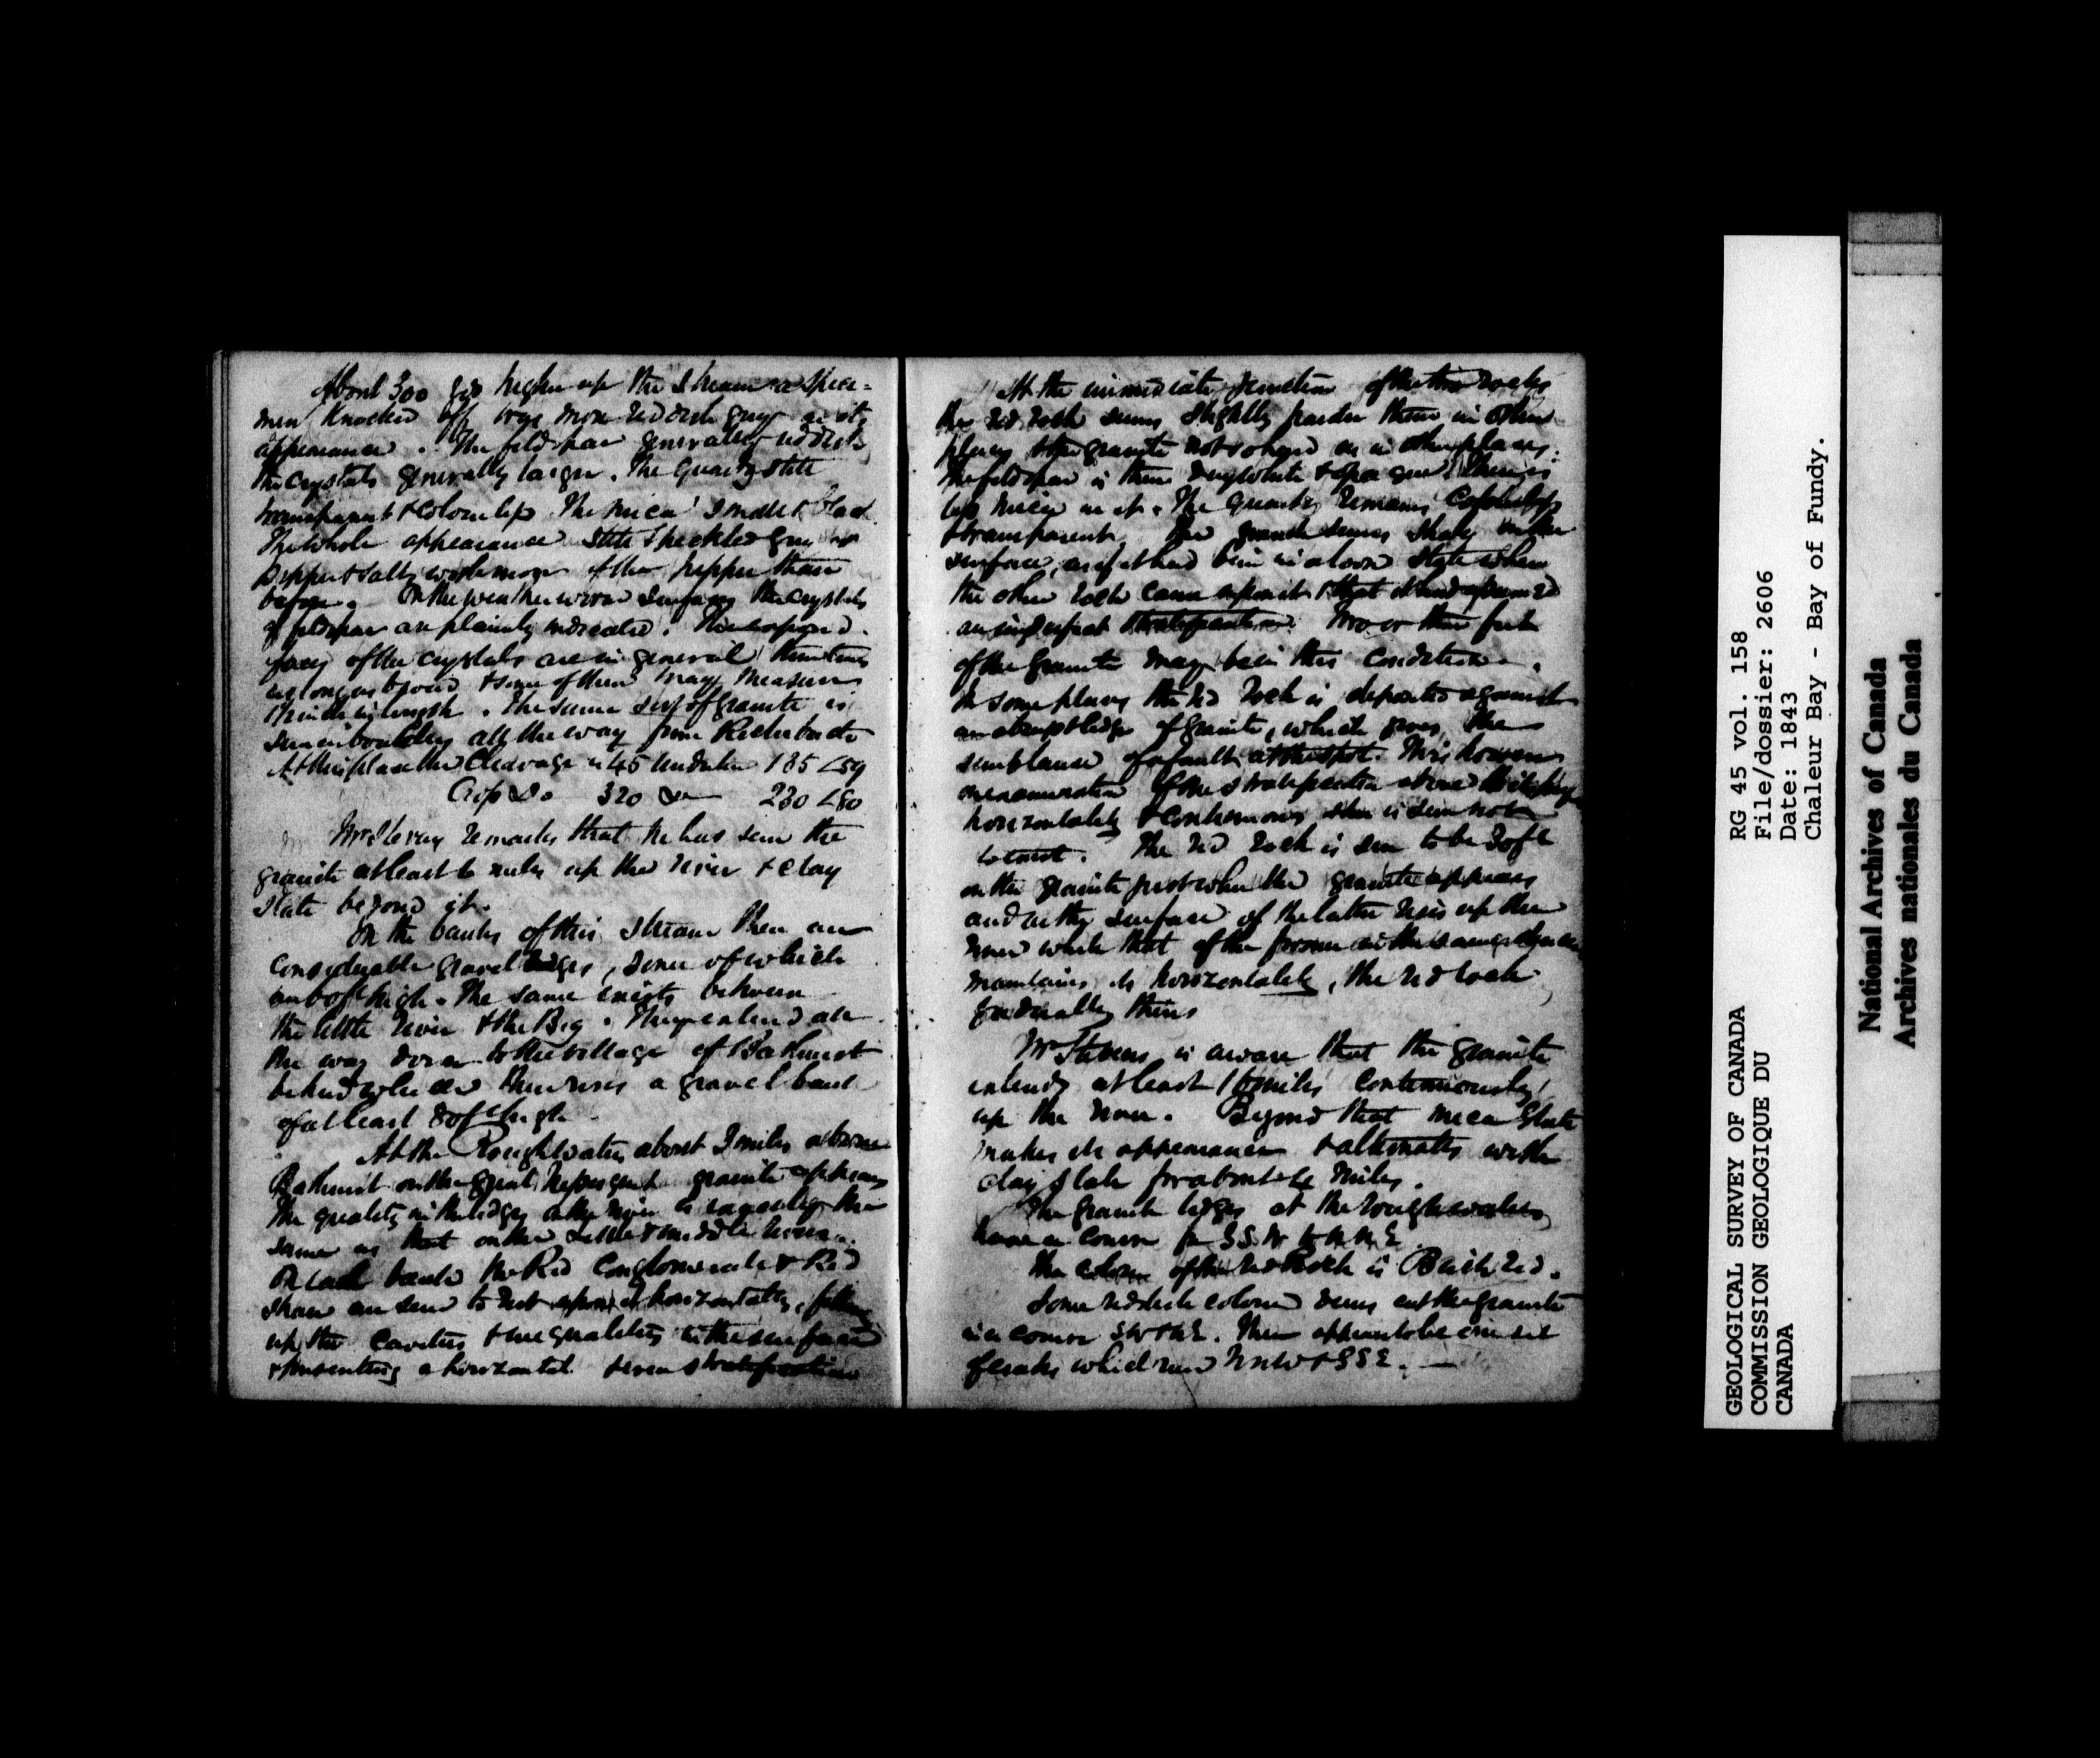 About 300 yds higher up the stream a speci=
men knocked off was more reddish grey in its
appearance. The feldspar generally reddish
the crystals generally larger. The quartz still
transparent & colourless The mica small & black.
The whole appearance still speckled grey
pepper & salt, with more of the pepper than
before. On the weather worn surfaces the crystals
of feldspar are plainly indicated. The exposed
faces of the crystals are in general three times
as long as broad & some of them may measure
inch in length. The same sort of granite is
seen in boulders all the way from Richibucto
At this place the Cleavage is 45 Underlie 135 <59
Crop Do 320 Do 230 <80
remarks that he has seen the
granite at least 6 miles up the river & clay
slate beyond it.
On the banks of this stream there are
considerable gravel ridges, some of which
are 60 ft high. The same exists between
the little river & the Big. They extend all
the way down to the village of Bathurst
behind which there rises a gravel bank
of at least 80 ft high
At the Rough Waters about 3 miles above
Bathurst on the great Nepisiguit granite appears
The quality in the ledges in the river is exactly the
same as that on the Little & middle rivers.
On each bank the Red Conglomerate & Red
are seen to rest upon it horizontally, filling
up the cavities & inequalities in the surface
& presenting a horizontal & even stratification
At the immediate junction of the two rocks
the red rock seems slightly harder than in other
places & the granite not so hard as in other places.
The feldspar is there very white & opaque. There is
less mica in it. The quartz remains colourless
& transparent. The granite seems shaly on the
surface, as if it had been in a loose state when
the other rock came upon it & that it had assumed
an imperfect stratification. Two or three feet
of the Granite may be in this condition.
In some places the red rock is deposited against
an abrupt ledge of granite, which gives the
semblance of a fault at the spot. This however
on examination of the stratification above
horizontality & continuous there is seen not
to exist. The red rock is seen to be 30 ft
on the granite just where the granite appears
and as the surface of the latter rises up the
river while that of the former in the same
maintains its horizontality, the red rock
gradually thins
Mr Stevens is aware that the granite
extends at least 16 miles continuously
up the river. Beyond that mica slate
makes its appearance & alternates with
clay slate for about 4 miles.
The granite ledges at the rough waters
have a course fr S.S.W to N.N.E
The colour of the red Rock is Brick red.
Some reddish coloured veins cut the granite
in a course SW & NE. There appear to be also
cracks which run NNW & SSE.
GEOLOGICAL SURVEY OF CANADA
COMMISSION GEOLOGIQUE DU
CANADA
RG 45 vol. 158
File/dossier: 2606
Date: 1843
Chaleur Bay - Bay of Fundy.
National Archives of Canada
Archives nationales du Canada